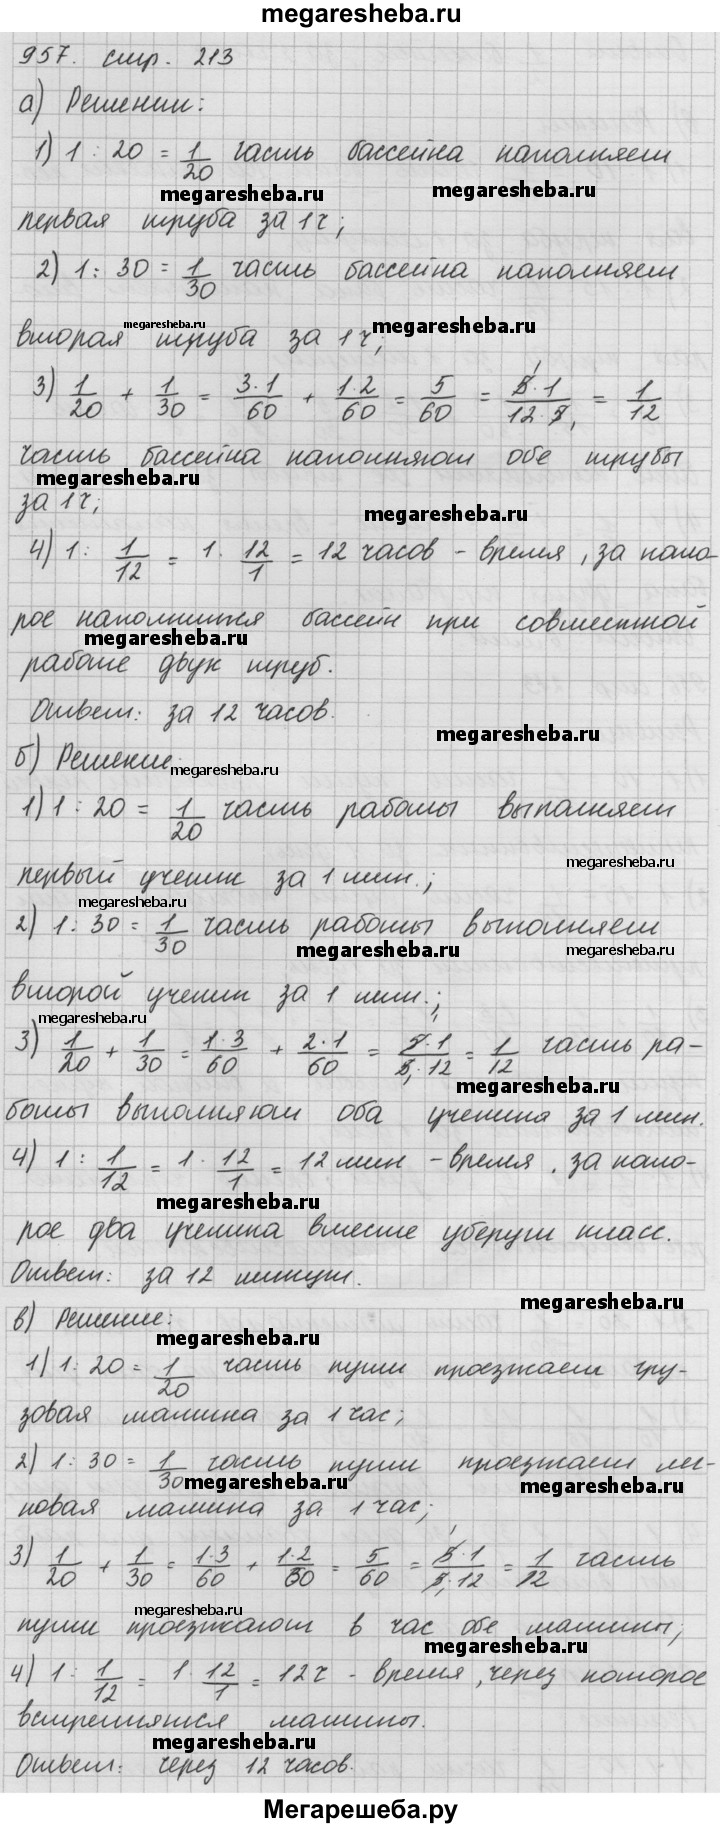 megaresheba.ru
957. стр. 213
а) Решении:
1) 1 : 20 = 1/20 часть бассейна наполняет
megaresheba.ru megaresheba.ru
первая труба за 1 ч;
2) 1 : 30 = 1/30 часть бассейна наполняет
megaresheba.ru megaresheba.ru
вторая труба за 1 ч;
3) 1/20 + 1/30 = 3·1/60 + 1·2/60 = 5/60 = 5·1/12·5 = 1/12
часть бассейна наполняют обе трубы
megaresheba.ru
за 1 ч;
megaresheba.ru
4) 1 : 1/12 = 1 · 12/1 = 12 часов - время, за кото-
рое наполнится бассейн при совместной
megaresheba.ru
работе двух труб.
Ответ: за 12 часов.
megaresheba.ru
б) Решение:
megaresheba.ru
1) 1 : 20 = 1/20 часть работы выполняет
megaresheba.ru
первый ученик за 1 мин.;
megaresheba.ru
2) 1 : 30 = 1/30 часть работы выполняет
megaresheba.ru megaresheba.ru
второй ученик за 1 мин.;
megaresheba.ru
3) 1/20 + 1/30 = 1·3/60 + 2·1/60 = 5·1/5·12 = 1/12 часть ра-
megaresheba.ru
боты выполняют оба ученика за 1 мин.
4) 1 : 1/12 = 1 · 12/1 = 12 мин - время, за кото-
megaresheba.ru
рое два ученика вместе уберут класс.
Ответ: за 12 минут.
megaresheba.ru
в) Решение:
megaresheba.ru
1) 1 : 20 = 1/20 часть пути проезжает гру-
зовая машина за 1 час;
2) 1 : 30 = 1/30 часть пути проезжает лег-
megaresheba.ru megaresheba.ru
ковая машина за 1 час;
3) 1/20 + 1/30 = 1·3/60 + 1·2/60 = 5/60 = 5·1/5·12 = 1/12 часть
megaresheba.ru
пути проезжают в час обе машины;
megaresheba.ru
4) 1 : 1/12 = 1 · 12/1 = 12 ч - время, через которое
встретятся машины.
megaresheba.ru
Ответ: через 12 часов.
Мегарешеба.ру